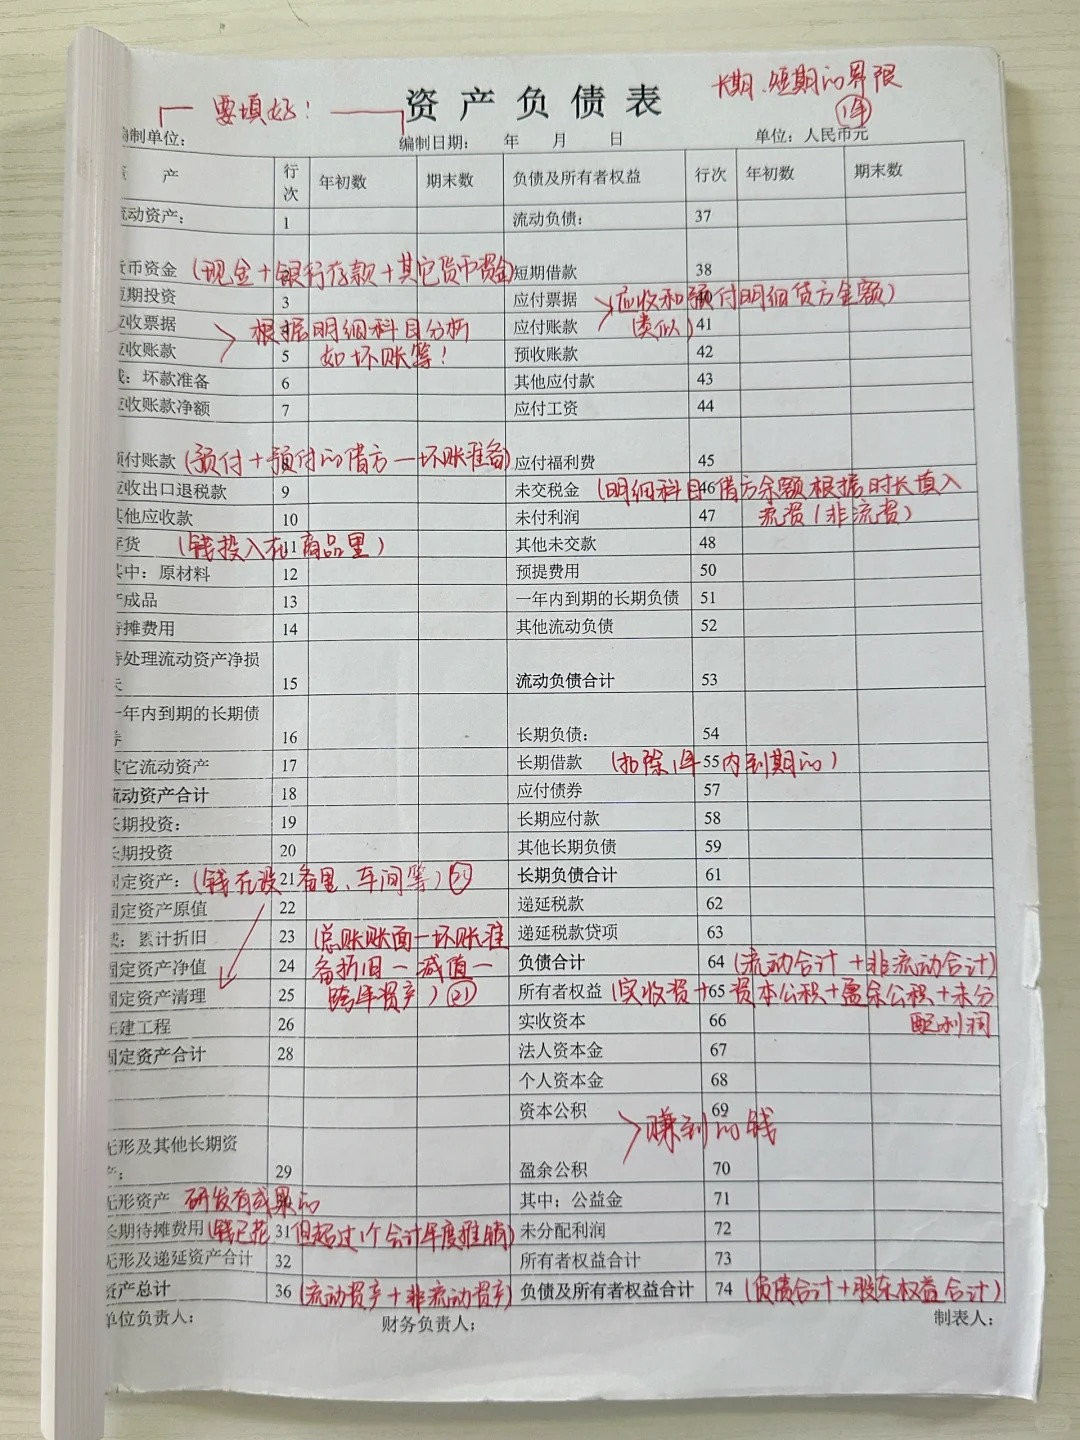 要填好！
资产负债表
长期、短期的界限
1年
制单位：
编制日期： 年 月 日
单位：人民币元
产 行次 年初数 期末数 负债及所有者权益 行次 年初数 期末数
流动资产： 1 流动负债： 37
货币资金 (现金+银行存款+其它货币资金) 短期借款 38
短期投资 3 应付票据 应收和预付明细贷方金额)
应收票据 根据明细科目分析 应付账款 (类似) 41
应收账款 5 如坏账等！ 预收账款 42
减：坏款准备 6 其他应付款 43
应收账款净额 7 应付工资 44
预付账款 (预付+预付的借方-坏账准备) 应付福利费 45
应收出口退税款 9 未交税金 46 (明细科目借方余额根据时长填入
其他应收款 10 未付利润 47 流资(非流资)
存货 11 (钱投入在商品里) 其他未交款 48
其中：原材料 12 预提费用 50
产成品 13 一年内到期的长期负债 51
待摊费用 14 其他流动负债 52
待处理流动资产净损
失 15 流动负债合计 53
一年内到期的长期债
券 16 长期负债： 54
其它流动资产 17 长期借款 55 (扣除1年内到期的)
流动资产合计 18 应付债券 57
长期投资： 19 长期应付款 58
长期投资 20 其他长期负债 59
固定资产： 21 (钱在设备里、车间等) 长期负债合计 61
固定资产原值 22 递延税款 62
减：累计折旧 23 (总账账面-坏账准 递延税款贷项 63
固定资产净值 24 备折旧-减值- 负债合计 64 (流动合计+非流动合计)
固定资产清理 25 跨年资产) 21 所有者权益 65 (实收资+资本公积+盈余公积+未分
在建工程 26 实收资本 66 配利润
固定资产合计 28 法人资本金 67
个人资本金 68
资本公积 69
赚到的钱
无形及其他长期资
产： 29 盈余公积 70
无形资产 研发有成果的 其中：公益金 71
长期待摊费用 31 (钱已花但超过1个会计年度推销) 未分配利润 72
无形及递延资产合计 32 所有者权益合计 73
资产总计 36 (流动资产+非流动资产) 负债及所有者权益合计 74 (负债合计+股东权益合计)
单位负责人： 财务负责人： 制表人：